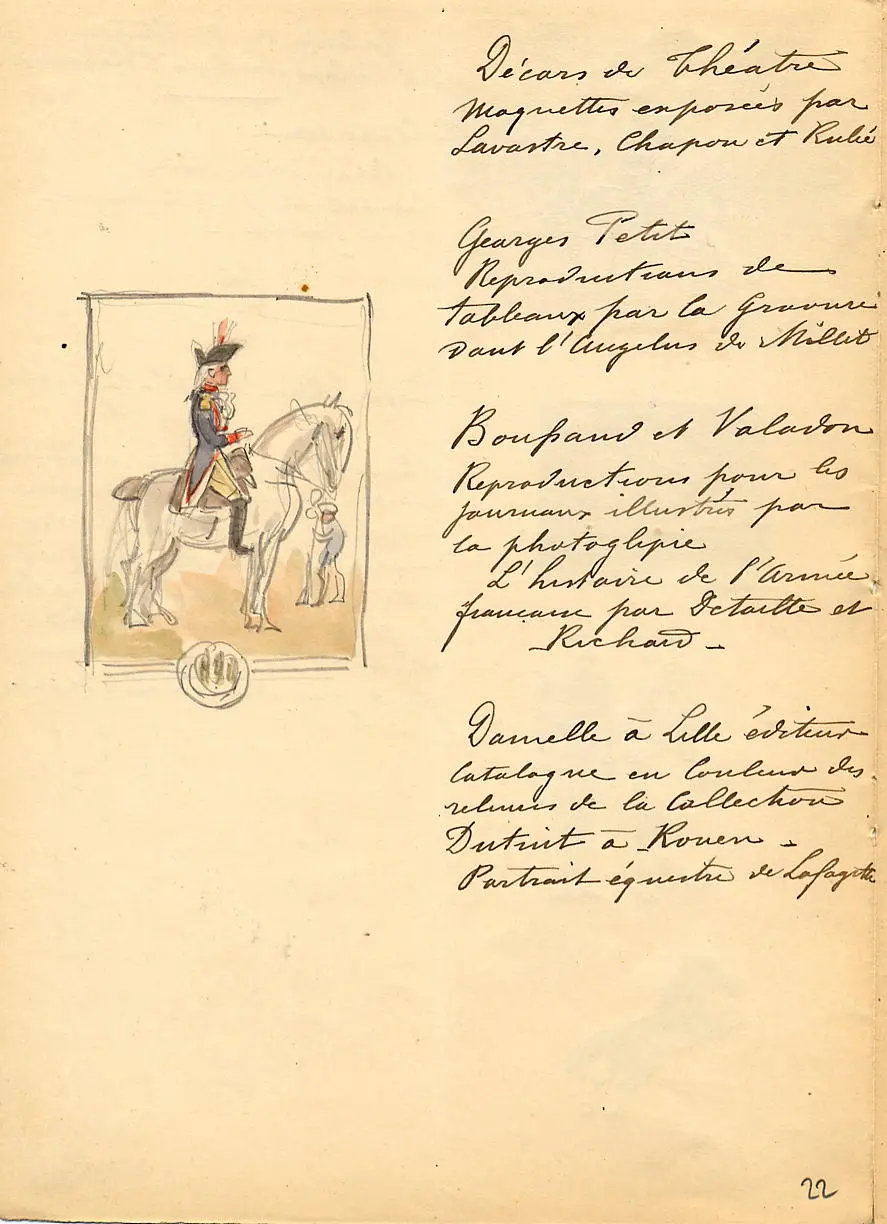 Décors de Théatre
Maquettes exposées par
Lavastre, Chapon et Rubé
Georges Petit
Reproductions de
tableaux par la Gravure
dont l'Angelus de Millet
Boussand et Valadon
Reproductions pour les
journaux illustrés par
la photoglipie
L'histoire de l'Armée
française par Detaille et
Richard -
Danielle à Lille éditeur
Catalogue en Couleur des
reliures de la Collection
Dutuit à Rouen -
Portrait équestre de Lafayette
22